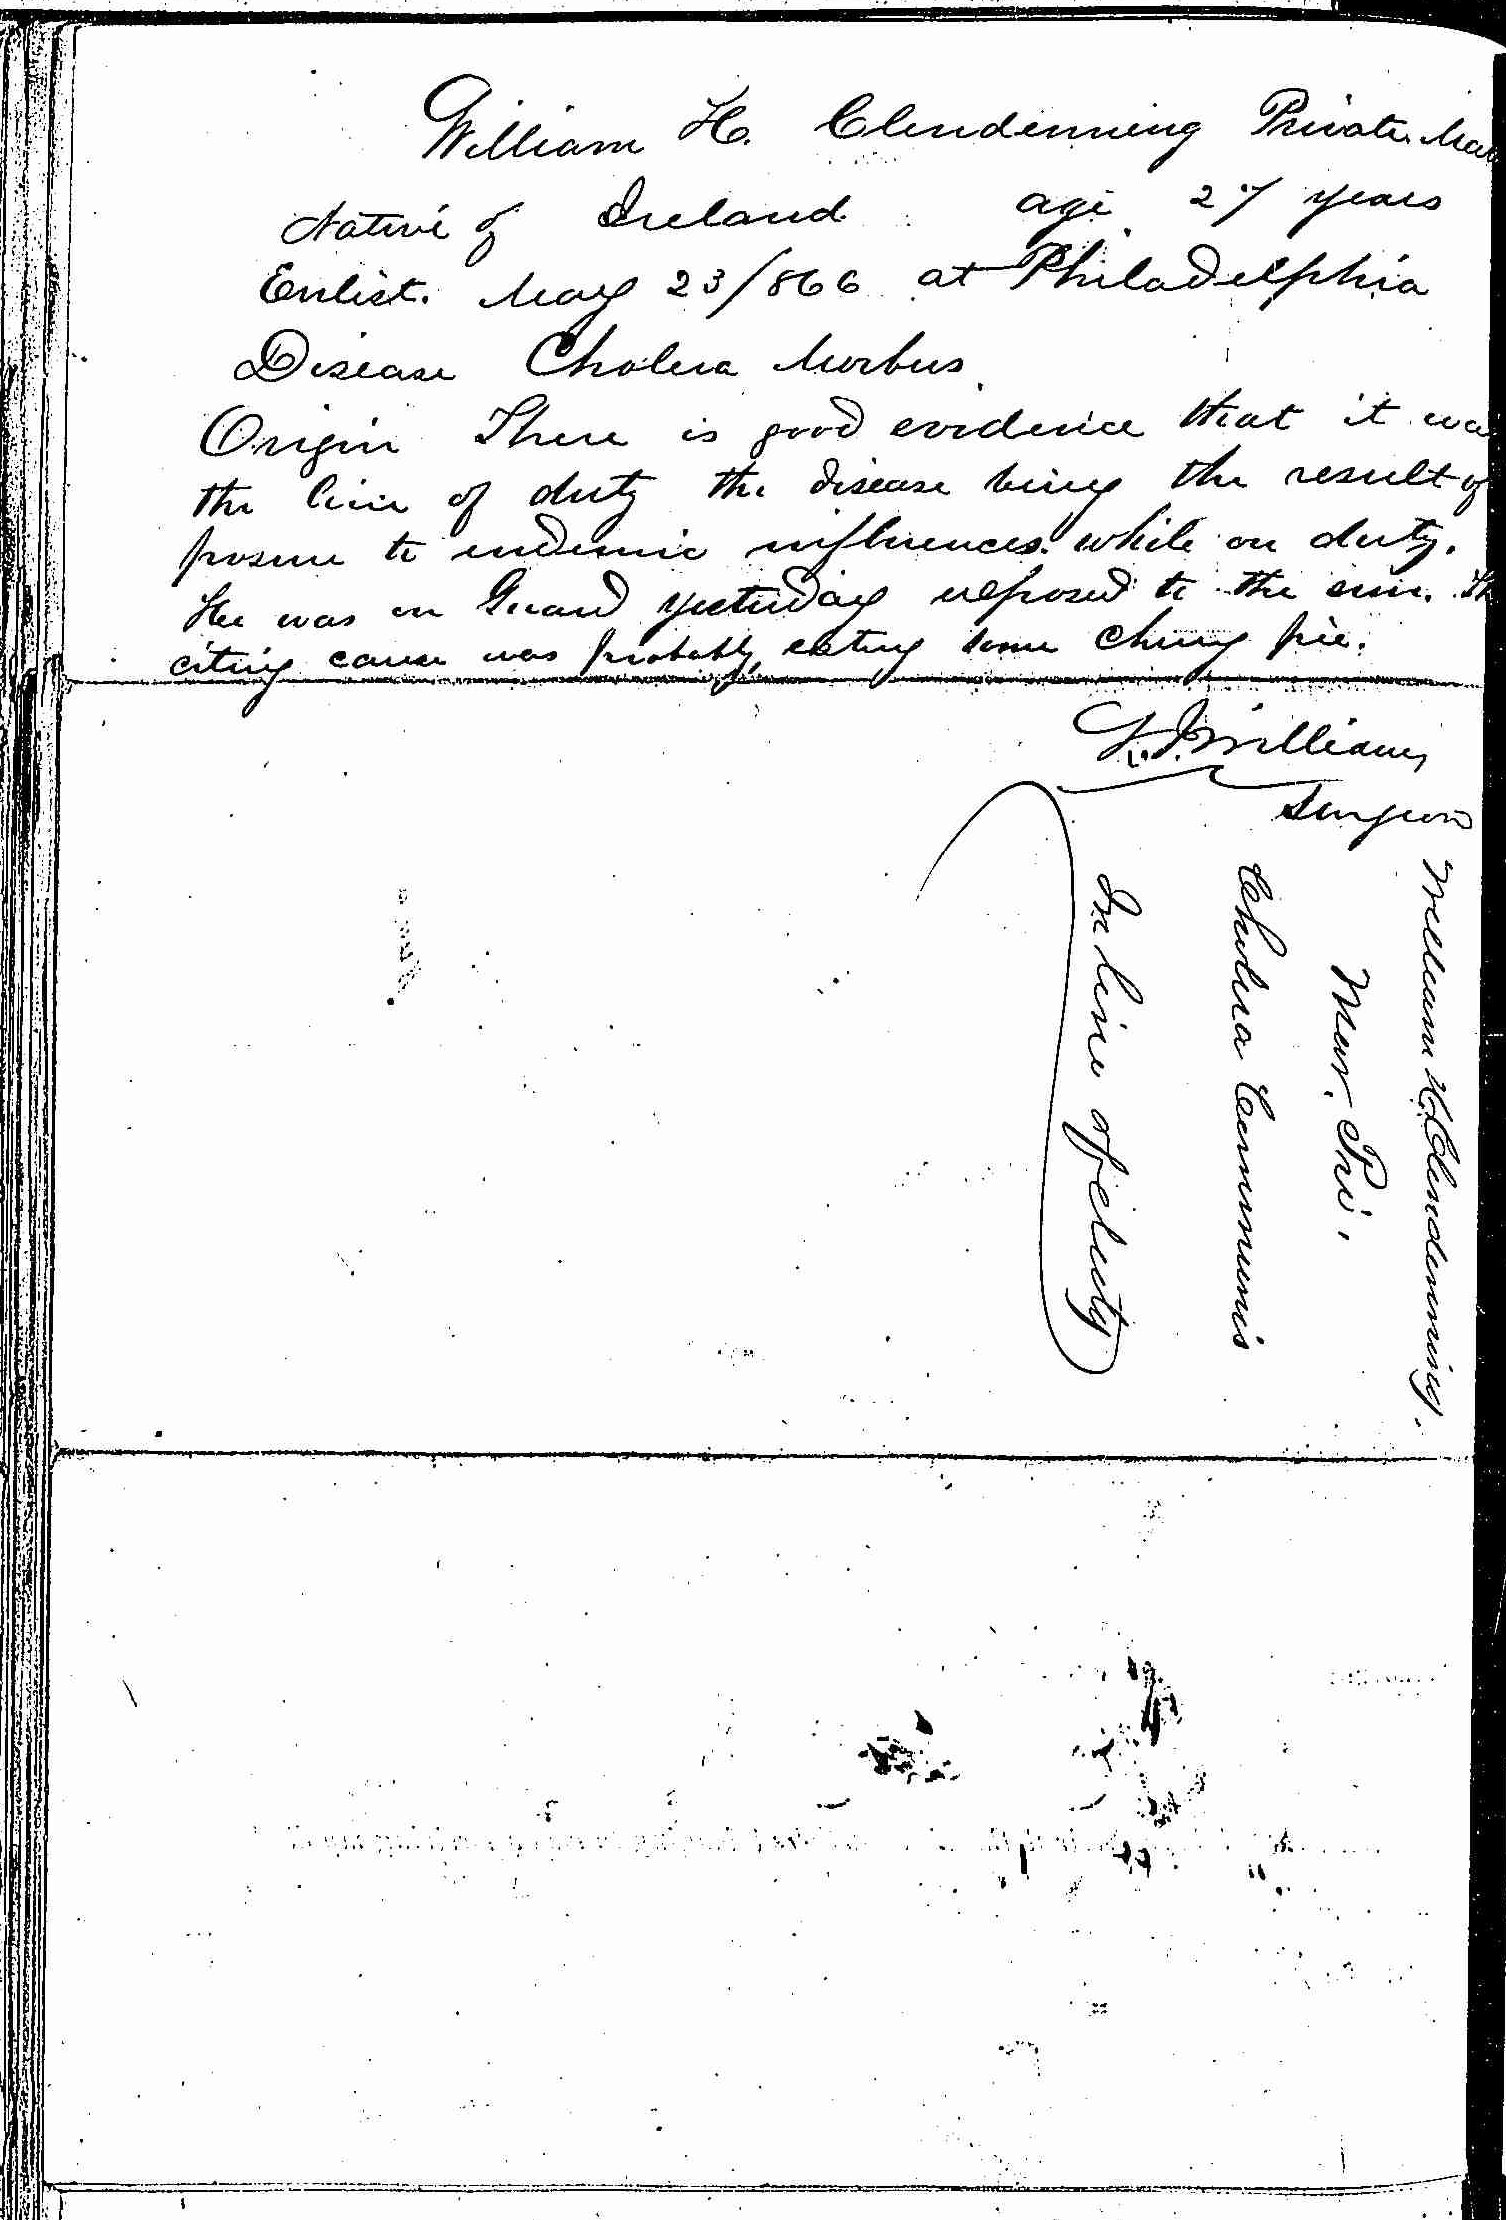 William H. Clendenning Private Mar
Native of Ireland age 27 years
Enlist. May 23/866 at Philadelphia
Disease Cholera Morbus
Origin There is good evidence that it wa
the line of duty the disease being the result of
posure to endemic influences while on duty.
He was on Guard yesterday exposed to the sun. Th
citing cause was probably eating some cherry pie.
Williams
Surgeon
William H. Clendenning.
Mar. Phi.
Cholera Communis
In line of duty